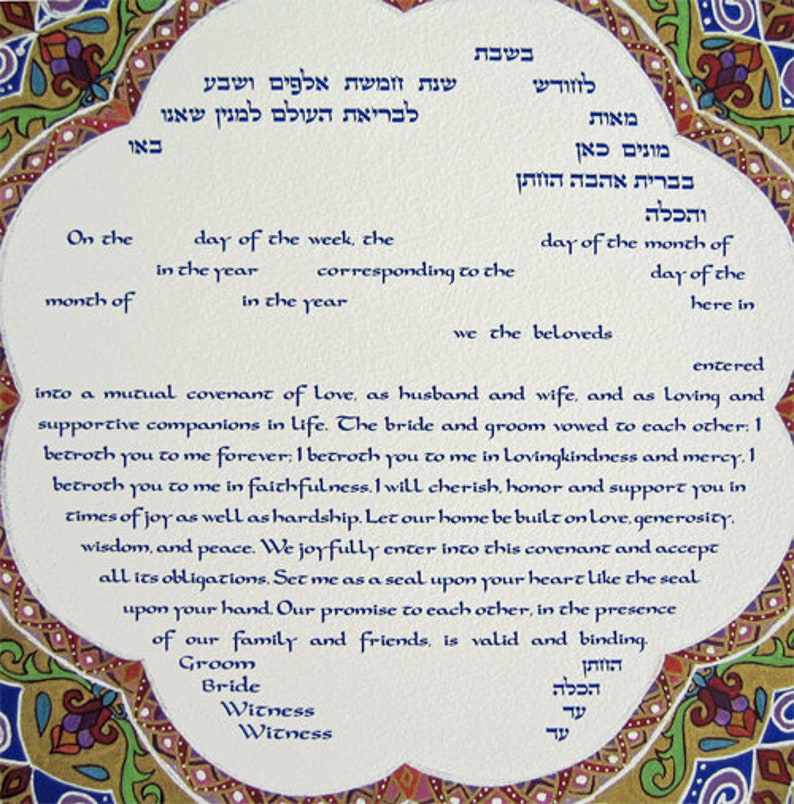 בשבת
לחודש שנת חמשת אלפים ושבע
מאות לבריאת העולם למנין שאנו
מונים כאן באו
בברית אהבה החתן
והכלה
On the day of the week, the day of the month of
in the year corresponding to the day of the
month of in the year here in
we the beloveds
entered
into a mutual covenant of love, as husband and wife, and as loving and
supportive companions in life. The bride and groom vowed to each other: I
betroth you to me forever; I betroth you to me in lovingkindness and mercy, I
betroth you to me in faithfulness. I will cherish, honor and support you in
times of joy as well as hardship. Let our home be built on love, generosity,
wisdom, and peace. We joyfully enter into this covenant and accept
all its obligations. Set me as a seal upon your heart like the seal
upon your hand. Our promise to each other, in the presence
of our family and friends, is valid and binding.
Groom החתן
Bride הכלה
Witness עד
Witness עד